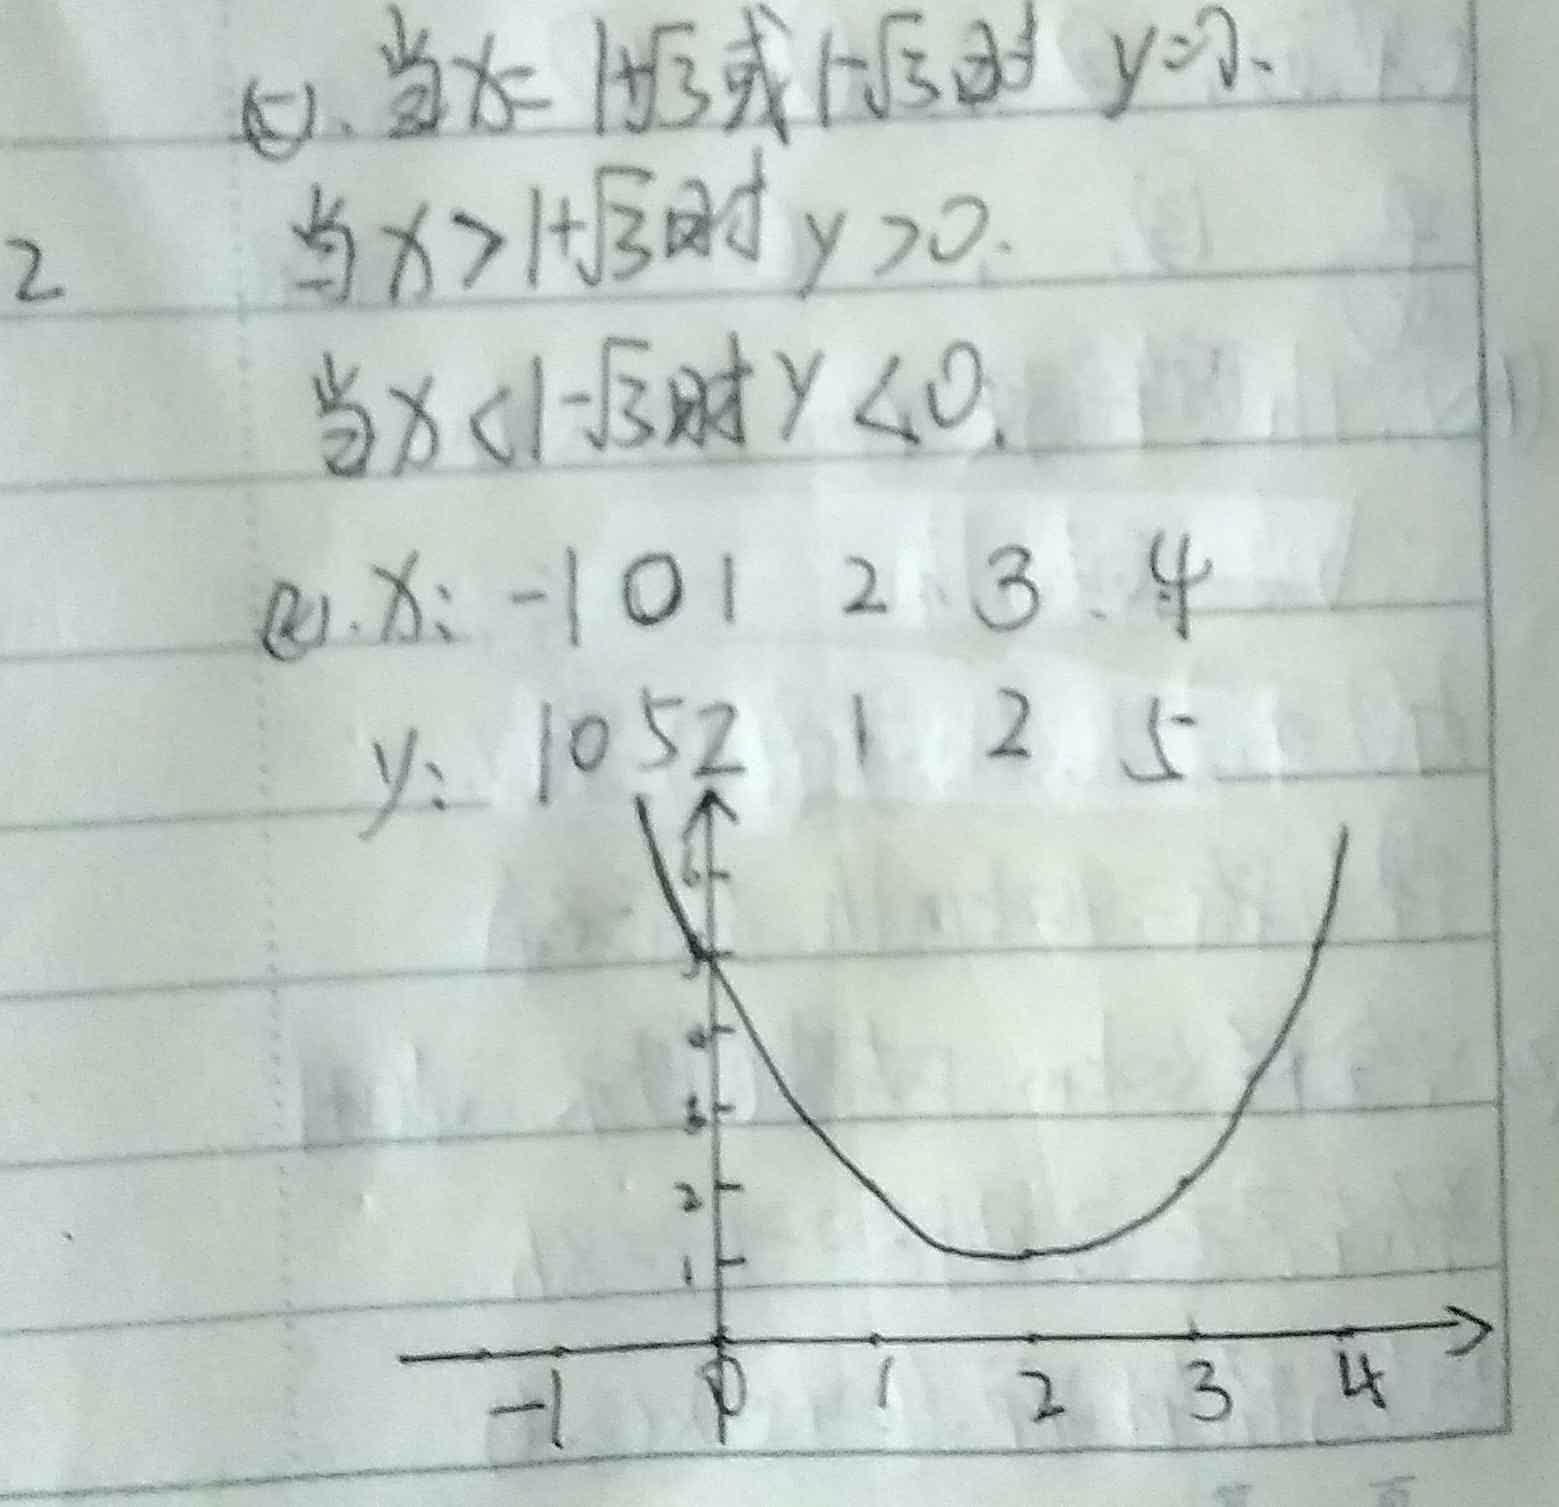 (5). 当x=1+√3或1-√3时 y=0.
2 当x>1+√3时 y>0.
当x<1-√3时y<0.
(2). x: -1 0 1 2 3 4
y: 10 5 2 1 2 5
6
5
4
3
2
1
-1 0 1 2 3 4